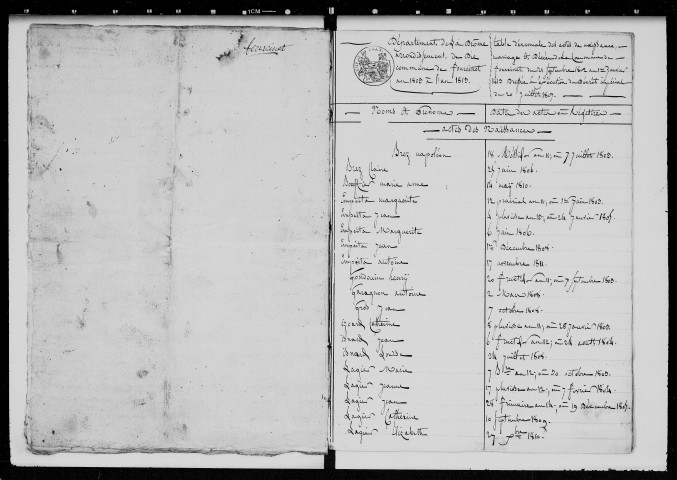 fourcinet
Département de la Drôme
arrondissement de Die
commune de fourcinet
an 1802 à l'an 1813.
table décennale des actes de naissance
mariage et Décès de la commune de
fourcinet du 21 septembre 1802 au 1er janvier
1813 Dressée à l'exécution du Décret impérial
du 20 juillet 1807.
Noms et Prénoms
Date des actes ou Registres
actes des Naissances
Brez napoléon 18 Messidor an 11, ou 7 juillet 1803.
Brez Claire 24 juin 1806.
marie anne 14 may 1810.
marguerite 12 prairial an 11, ou 1er juin 1803.
jean 4 pluviose an 13, ou 24 janvier 1805.
Marguerite 6 juin 1806.
jean Décembre 1808.
antoine 17 novembre 1811.
henry 20 fructidor an 11, ou 7 septembre 1803.
antoine 2 Mars 1808.
Gros jean 7 octobre 1808.
Catherine 8 pluviose an 11, ou 28 janvier 1803.
jean 6 fructidor an 12, ou 24 aoutt 1804.
Louise 24 juillet 1808.
Lagier Marie 7 Bre an 12, ou 30 octobre 1803.
Lagier jeanne 17 pluviose an 12, ou 7 fevrier 1804.
Lagier jean 28 frimaire an 14, ou 19 Décembre 1805.
Lagier Catherine 10 septembre 1809.
Lagier Elizabeth 27 1811.